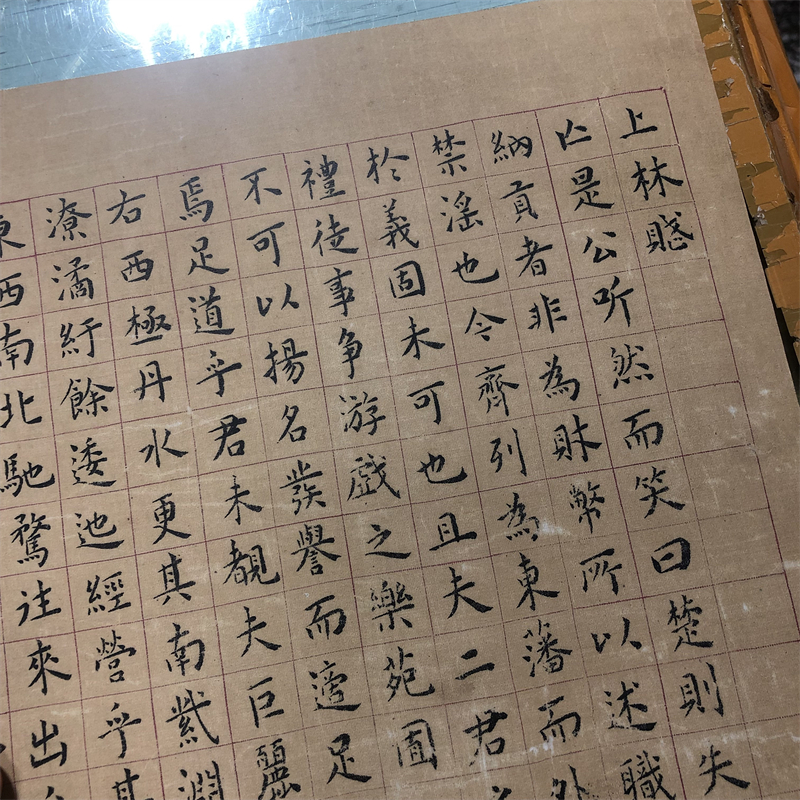 上林賦
亡是公听然而笑曰楚則失
納貢者非為財幣所以述職
禁淫也令齊列為東藩而外
於義固未可也且夫二君
禮徒事爭游戲之樂苑囿
不可以揚名發譽而適足
焉足道乎君未覩夫巨麗
右西極丹水更其南紫淵
潦潏紆餘逶迆經營乎其
東西南北馳騖往來出